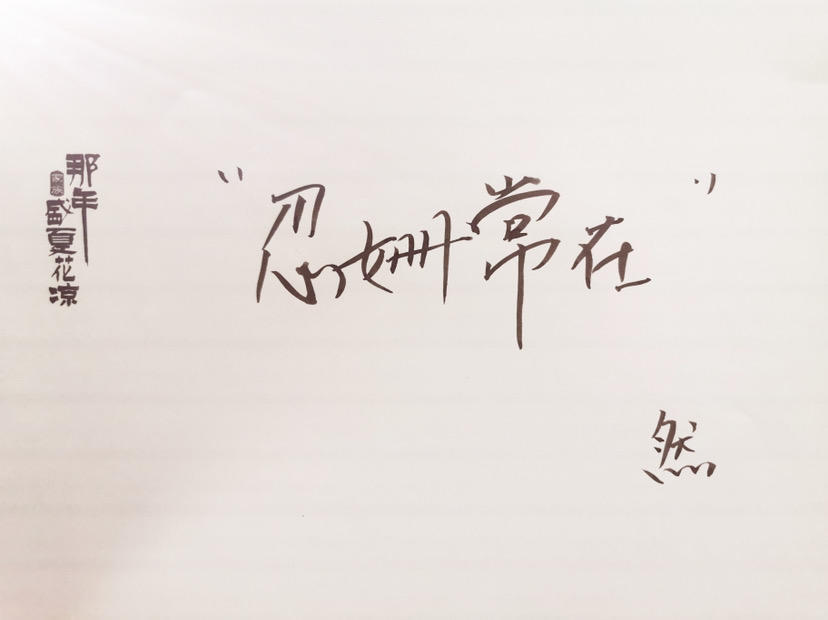 那年
家族
盛夏花凉
“忍姗常在”
然